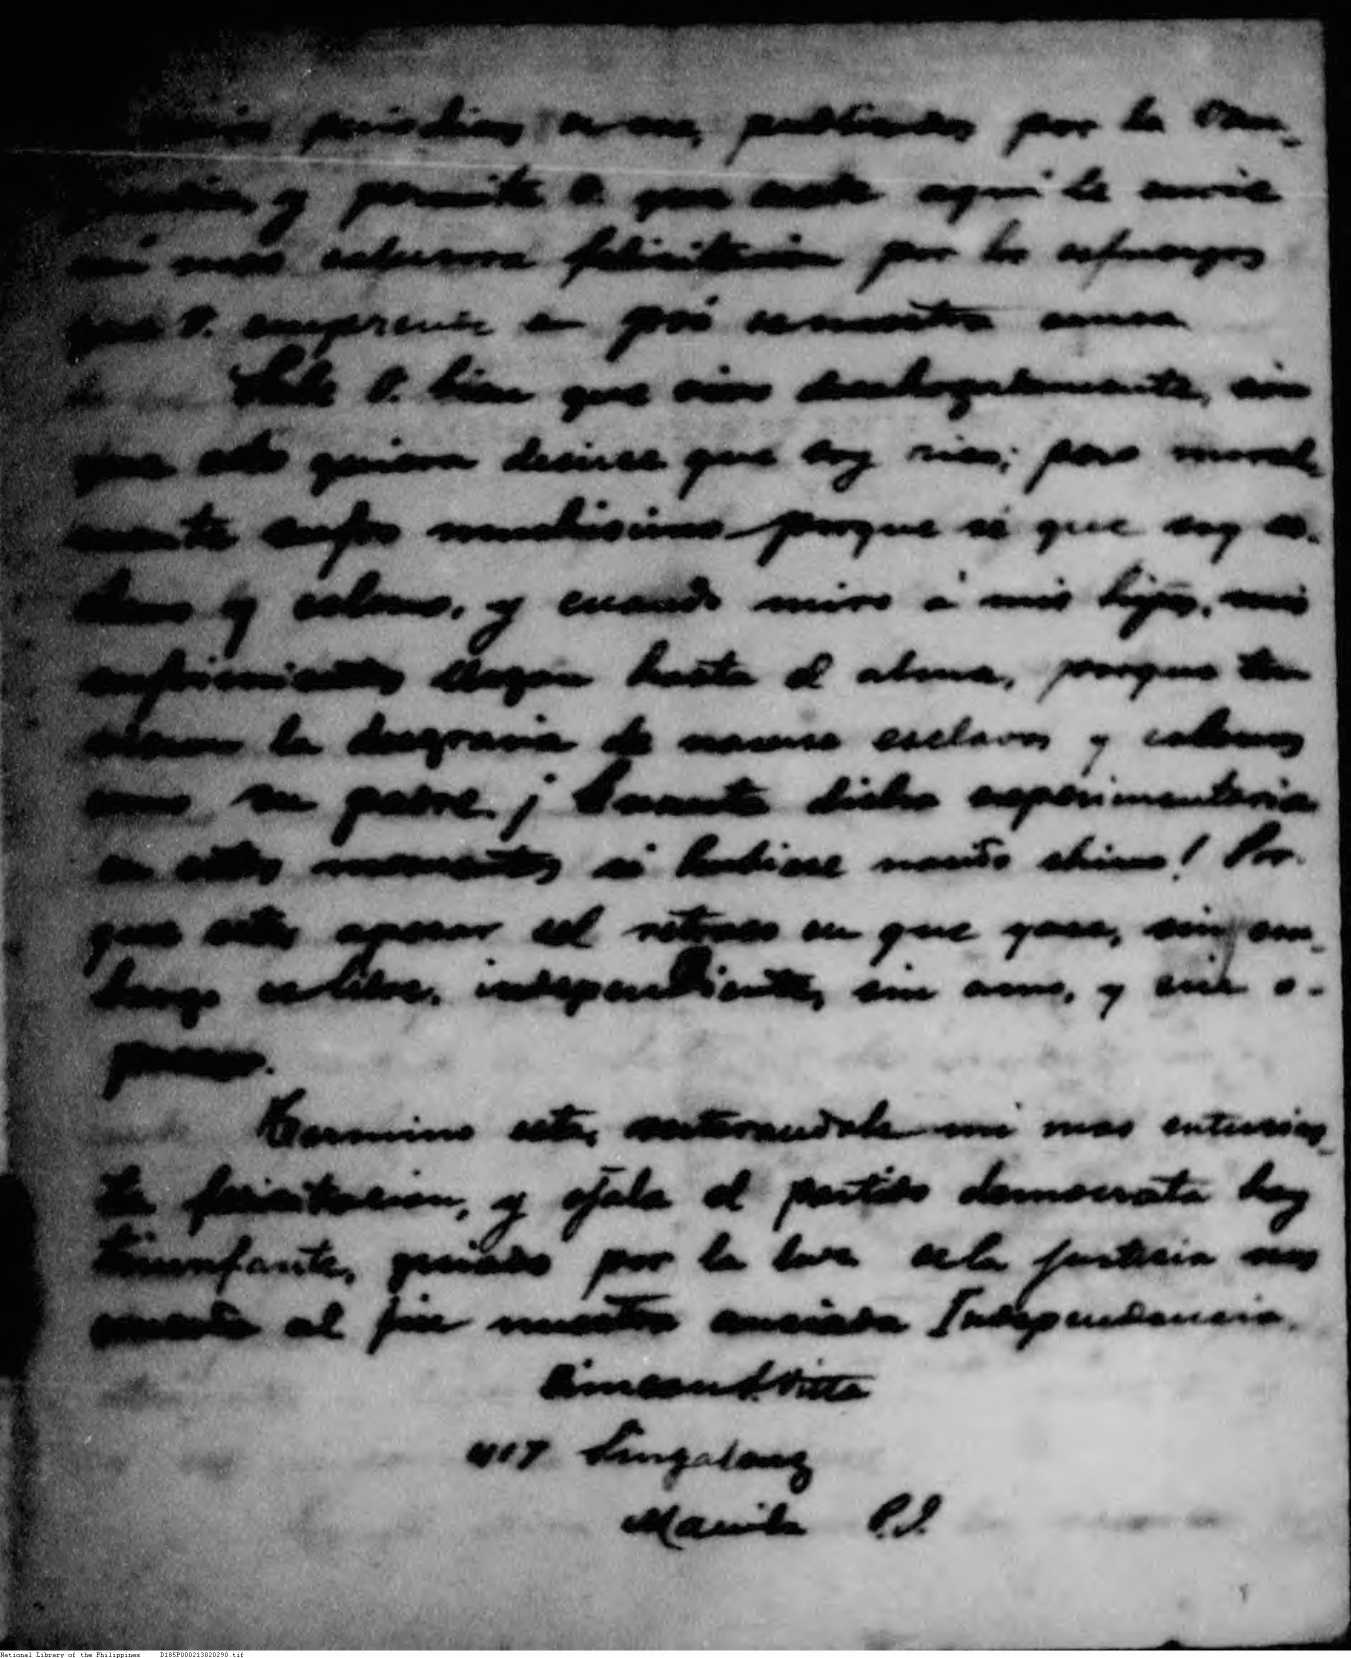 publicados por la Van-
y permita V. que desde aquí le envie
mi mas calurosa felicitación por los esfuerzos
que V. emprende en pró de nuestra causa
Sabe V. bien que vivo desahogadamente, sin
que esto quiera decirse que soy rico; pero moral-
mente sufro muchisimo porque sé que soy es-
clavo y colono, y cuando miro á mis hijos, mis
sufrimientos llegan hasta el alma, porque tu-
vieron la desgracia de nacerse esclavos y colonos
como su padre. ¡Cuanta dicha experimentaria
en estos momentos si hubiese nacido chino! Por-
que este, apesar del retraso en que yace, sin em-
bargo es libre, independiente, sin amo, y sin o-
presor.
Termino esta, reiterandole mi mas entusias-
ta felicitacion, y ojala el partido democrata hoy
triunfante, guiado por la luz de la justicia nos
conceda al fin nuestra ansiada Independencia.
Simeon Villa
Singalong
Manila P.I.
National Library of the Philippines D185P000213020290.tif